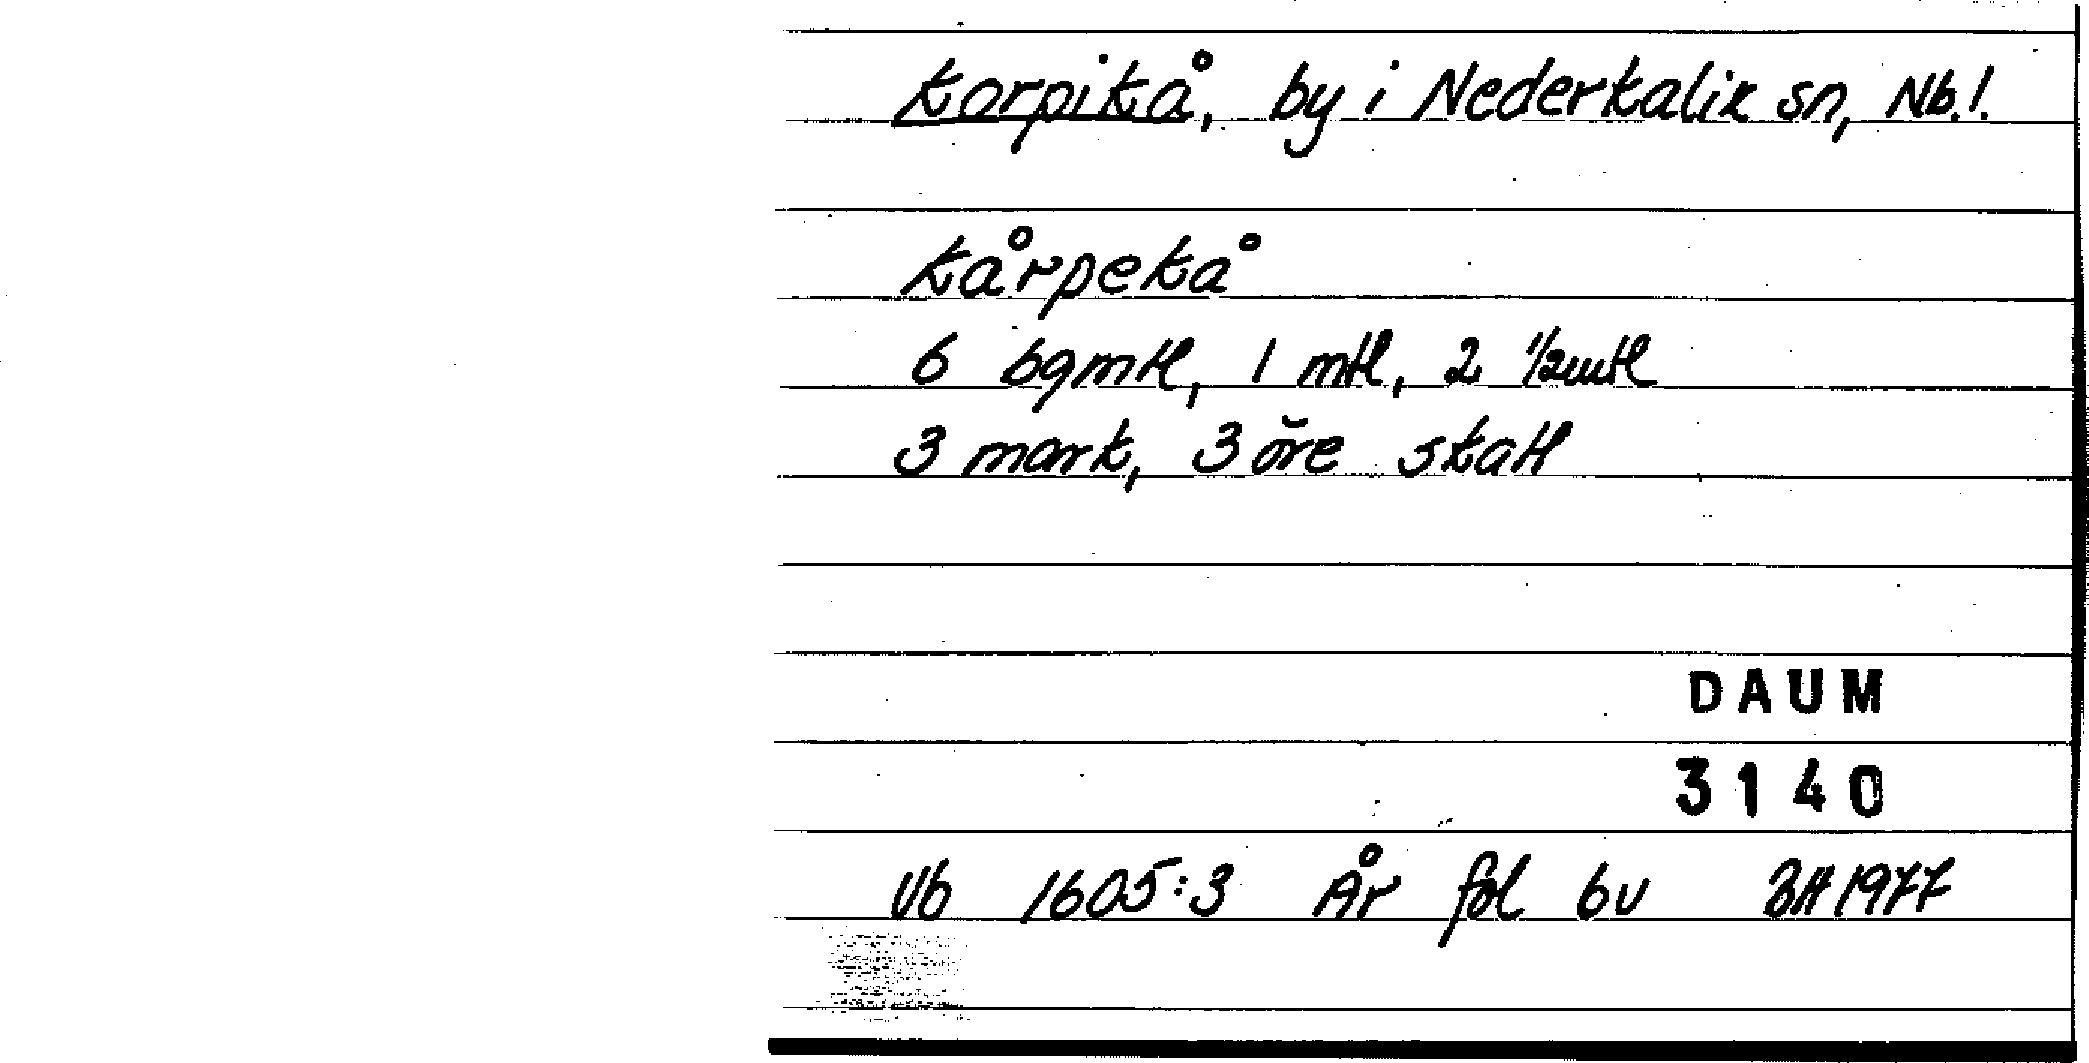 Korpikå, by i Nederkalix sn, Nb.l.
Kårpekå
6 bgmtl, 1 mtl, 2 1/2mtl
3 mark, 3 öre skatt
DAUM
3140
Vb 1605:3 År fol 6v BH 1977